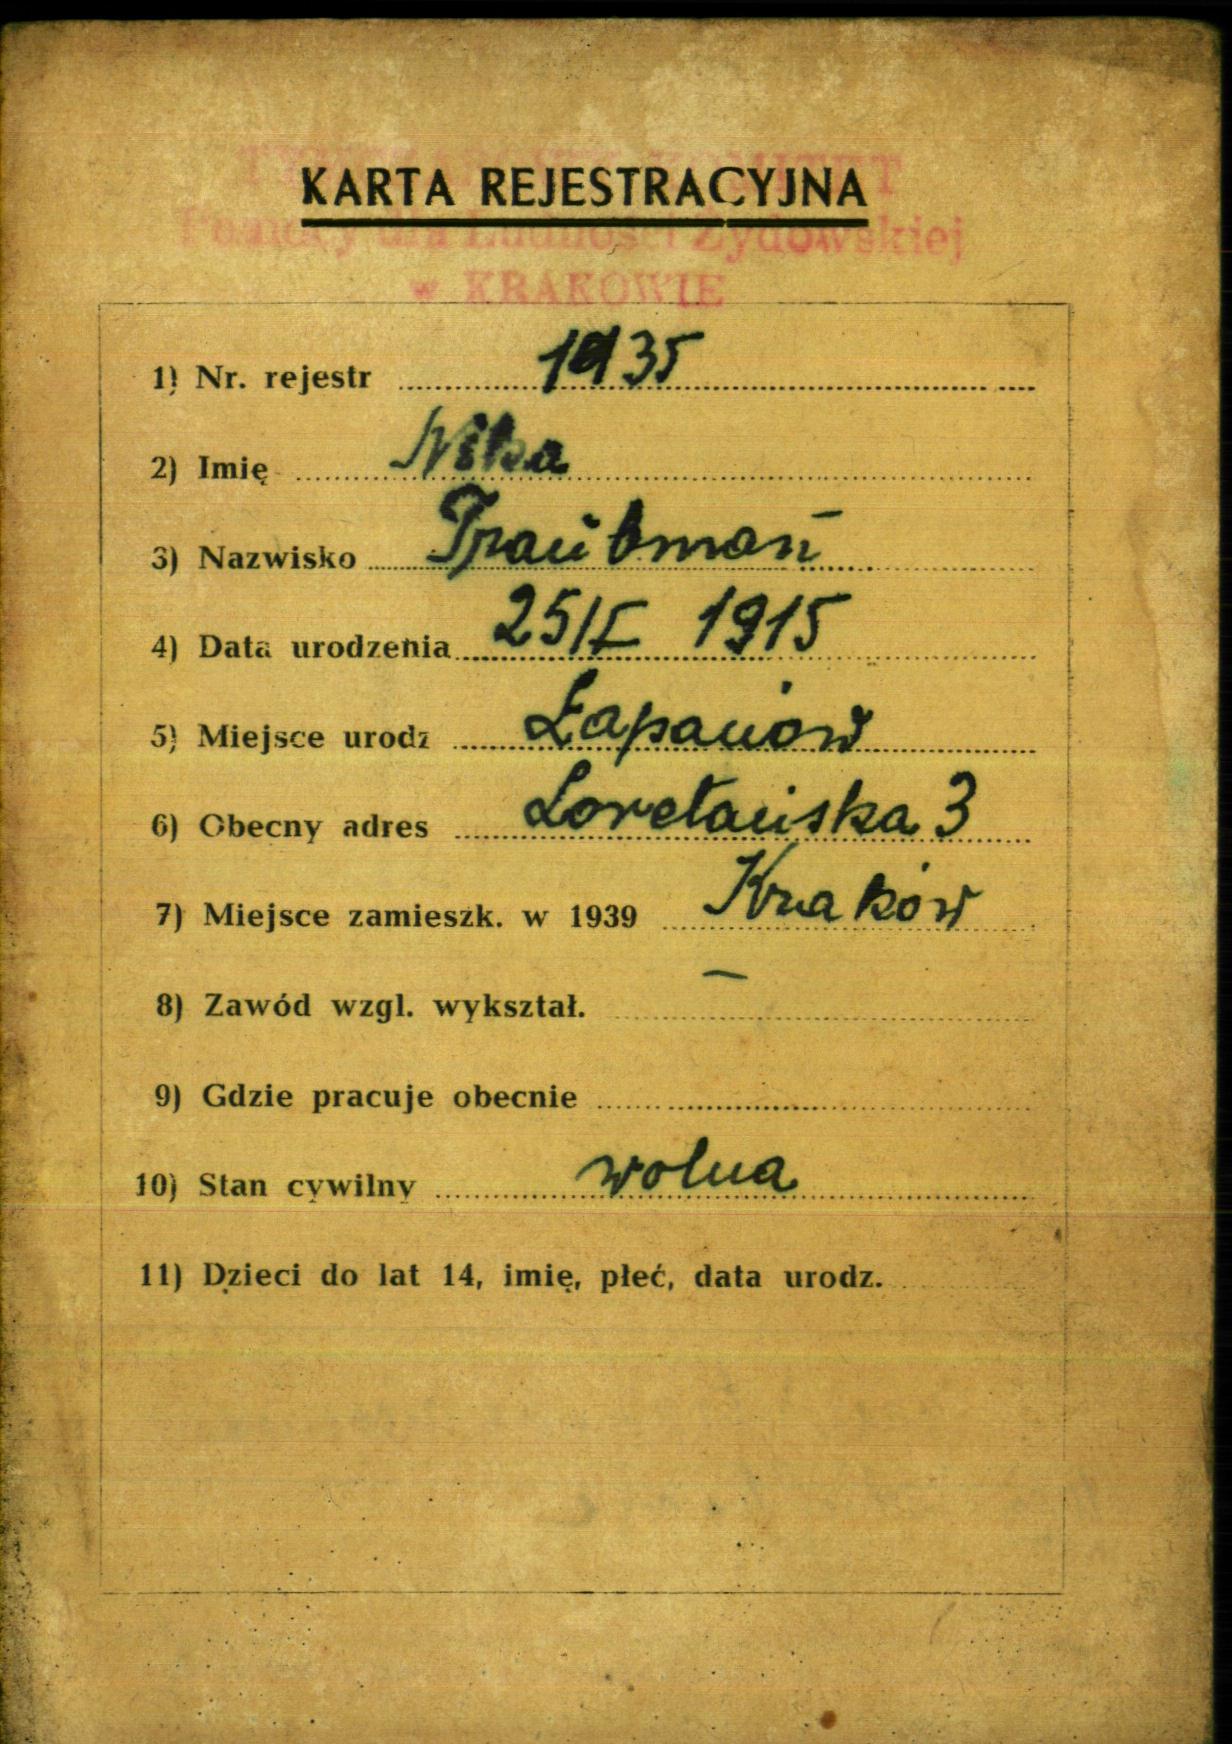 TYMCZASOWY KOMITET
KARTA REJESTRACYJNA
Pomocy dla Ludności Żydowskiej
w KRAKOWIE
1) Nr. rejestr 1935
2) Imię
3) Nazwisko Traubman
4) Data urodzenia 25/I 1915
5) Miejsce urodz Łapanów
6) Obecny adres Loretańska 3
7) Miejsce zamieszk. w 1939 Kraków
8) Zawód wzgl. wykształ. –
9) Gdzie pracuje obecnie
10) Stan cywilny wolna
11) Dzieci do lat 14, imię, płeć, data urodz.